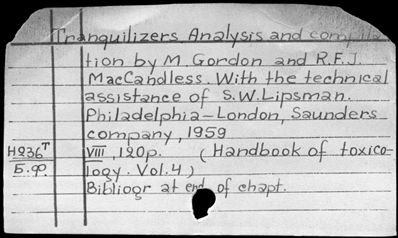 Tranquilizers Analysis and compila
tion by M. Gordon and R.F.J.
MacCandless. With the technical
assistance of S.W. Lipsman.
Philadelphia-London, Saunders
company, 1959
H236T VIII, 120p. (Handbook of toxico-
Б.Ф. logy. Vol. 4)
Bibliogr at end of chapt.